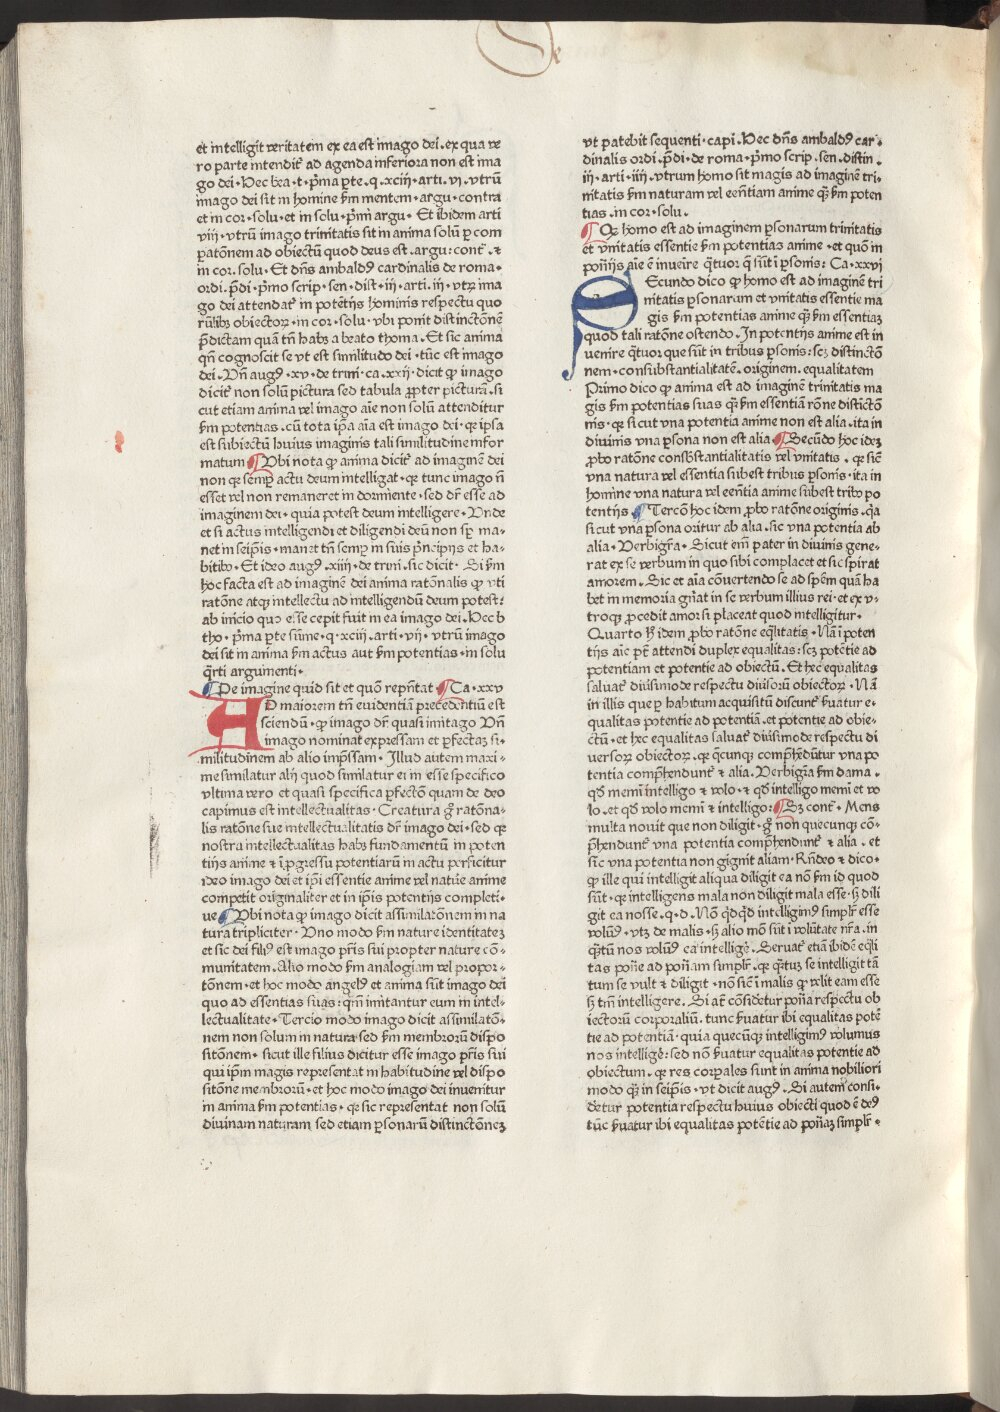 Se
et intelligit veritatem ex ea est imago dei . ex qua ve
ro parte intendit̃ ad agenda inferiora non est ima
go dei · Hec bea · t · p̃ma p̲te · q · xciij · arti · vi · vtrũ
imago dei sit in homine ẜm mentem · argu · contra
et in cor · solu · et in solu · p̃mi argu · Et ibidem arti
viij · vtrũ imago trinitatis sit in anima solũ p̲ com
p̲atõnem ad obiectũ quod deus est . argu: cont̃ · ⁊
in cor. solu · Et dñs ambaldꝰ cardinalis de roma ·
ordi . p̃di · p̃mo scrip · sen · dist · iij · arti · iij · vtꝝ ima
go dei attendat̃ in potẽtijs hominis respectu quo
rũlibꝫ obiectoꝝ · in cor · solu · vbi ponit distinctõnẽ
p̃dictam quã tñ habꝫ a beato thoma · Et sic anima
qñ cognoscit se vt est similitudo dei · tũc est imago
dei · Vñ augꝰ · xv · de trini · ca · xxij · dicit ꝙ imago
dicit̃ non solũ pictura sed tabula ꝓpter picturã . si
cut etiam anima vel imago aĩe non solũ attenditur
ẜm potentias · cũ tota ip̃a aĩa est imago dei · ꝙ ipsa
est subiectũ huius imaginis tali similitudine infor
matum ¶ Vbi nota ꝙ anima dicit̃ ad imaginẽ dei
non ꝙ semp̲ actu deum intelligat · ꝙ tunc imago ñ
esset vel non remaneret in dormiente · sed dr̃ esse ad
imaginem dei · quia potest deum intelligere · Vnde
et si actus intelligendi et diligendi deũ non sp̲ ma⸗
net in seip̃is · manet tñ semp̲ in suis p̃ncipijs et ha⸗
bitibꝰ · Et ideo augꝰ · xiiij · de trini . sic dicit · Si ẜm
hoc facta est ad imaginẽ dei anima ratõnalis ꝙ vti
ratõne atqꝫ intellectu ad intelligendũ deum potest:
ab inicio quo esse cepit fuit in ea imago dei · Hec b
tho · p̃ma p̲te sũme · q · xciij . arti · vij · vtrũ imago
dei sit in anima ẜm actus aut ẜm potentias · in solu
q̃rti argumenti ·
¶ De imagine quid sit et quõ repñtat ¶ Ca · xxv
AD maiorem tñ euidentiã precedentiũ est
sciendũ · ꝙ imago dr̃ quasi imitago Vñ
imago nominat expressam et p̲fectaꝫ si⸗
militudinem ab alio imp̃ssam · Illud autem maxi⸗
me similatur alij quod similatur ei in esse specifico
vltima vero et quasi specifica p̲fectõ quam de deo
capimus est intellectualitas · Creatura g̃ ratõna⸗
lis ratõne sue intellectualitatis dr̃ imago dei · sed ꝙ
nostra intellectualitas habꝫ fundamentũ in poten
tijs anime ⁊ ĩ ꝓgressu potentiarũ in actu p̲ficitur
ideo imago dei et ip̃i essentie anime vel nature anime
competit originaliter et in ip̃is potentijs completi⸗
ue ¶ Vbi nota ꝙ imago dicit assimilatõnem in na
tura tripliciter · Vno modo ẜm nature identitateꝫ
et sic dei filiꝰ est imago pr̃is sui propter nature cõ⸗
munitatem . Alio modo ẜm analogiam vel propor⸗
tõnem · et hoc modo angelꝰ et anima sũt imago dei
quo ad essentias suas : q̃m imitantur eum in intel⸗
lectualitate · Tercio modo imago dicit assimilatõ⸗
nem non solum in natura sed ẜm membrorũ dispo
sitõnem · sicut ille filius dicitur esse imago pr̃is sui
qui ip̃m magis representat in habitudine vel dispo
sitõne membrorũ · et hoc modo imago dei inuenitur
in anima ẜm potentias · ꝙ sic representat non solũ
diuinam naturam sed etiam p̲sonarũ distinctõneꝫ
vt patebit sequenti · capi. Hec dñs ambaldꝰ car⸗
dinalis ordi . p̃di · de roma · p̃mo scrip . sen . distin .
iij · arti · iiij · vtrum homo sit magis ad imaginẽ tri⸗
nitatis ẜm naturam vel eẽntiam anime q̃ꝫ ẜm poten
tias . in cor · solu .
¶ Qꝙ homo est ad imaginem p̲sonarum trinitatis
et vnitatis essentie ẜm potentias anime · et quõ in
poñijs aĩe ẽ inueire q̃tuor q̃ sũt ĩ p̲sonis: Ca · xxvj
SEcundo dico ꝙ homo est ad imaginẽ tri
nitatis p̲sonarum et vnitatis essentie ma
gis ẜm potentias anime q̃ꝫ ẜm essentiaꝫ
quod tali ratõne ostendo . In potentijs anime est in
uenire q̃tuor que sũt in tribus p̲sonis: scꝫ distinctõ
nem · consubstantialitatẽ . originem . equalitatem
Primo dico ꝙ anima est ad imaginẽ trinitatis ma
gis ẜm potentias suas q̃ꝫ ẜm essentiã rõne distictõ
nis · ꝙ sicut vna potentia anime non est alia . ita in
diuinis vna p̲sona non est alia ¶ Secũdo hoc ideꝫ
ꝓbo ratõne consb̃stantialitatis vel vnitatis . ꝙ sic̃
vna natura vel essentia subest tribus p̲sonis · ita in
homine vna natura vel eẽntia anime subest tribꝰ po
tentijs ¶ Tercõ hoc idem ꝓbo ratõne originis . q̃a
sicut vna p̲sona oritur ab alia . sic vna potentia ab
alia · Verbigr̃a · Sicut em̃ pater in diuinis gene⸗
rat ex se verbum in quo sibi complacet et sic spirat
amorem . Sic et aĩa cõuertendo se ad sp̃em quã ha
bet in memoria gñat in se verbum illius rei · et ex v⸗
troqꝫ ꝓcedit amor si placeat quod intelligitur ·
Quarto h̃ idem ꝓbo ratõne eq̃litatis · Nã ĩ poten
tijs aĩe põt attendi duplex equalitas: scꝫ potẽtie ad
potentiam et potentie ad obiectũ . Et hec equalitas
saluat̃ diũsimode respectu diũsorũ obiectoꝝ · Nã
in illis que p̲ habitum acquisitũ discunt̃ ẜuatur e⸗
qualitas potentie ad potentiã . et potentie ad obie⸗
ctũ · et hec equalitas saluat̃ diũsimode respectu di
uersoꝝ obiectoꝝ . ꝙ q̃cunqꝫ comp̃hẽdũtur vna po
tentia comp̃hendunt̃ ⁊ alia . Verbigr̃a ẜm dama .
qd̃ memĩ intelligo ⁊ volo · ⁊ qd̃ intelligo memĩ et vo
lo . et qd̃ volo memĩ ⁊ intelligo: ¶ Sꝫ cont̃ · Mens
multa nouit que non diligit · g̃ non quecunqꝫ cõ⸗
p̃hendunt̃ vna potentia comp̃hendunt̃ ⁊ alia . et
sic̃ vna potentia non gignit aliam · Rñdeo ⁊ dico ·
ꝙ ille qui intelligit aliqua diligit ea nõ ẜm id quod
sũt · ꝙ intelligens mala non diligit mala esse · h̃ dili
git ea nosse . q . d . Nõ q̃dq̃d intelligimꝰ simplr̃ esse
volũꝰ · vtꝫ de malis · h̃ alio mõ sũt ĩ volũtate nr̃a . in
q̃ꝫtũ nos volũꝰ ea intelligẽ . Seruat̃ etiã ibidẽ eq̃li
tas poñe ad poñam simplr̃ . ꝙ q̃ꝫtuꝫ se intelligit tã
tum se vult ⁊ diligit · nõ sic̃ ĩ malis ꝙ velit eam esse
h̃ tm̃ intelligere . Si at̃ cõsidetur poña respectu ob
iectorũ corporaliũ . tunc ẜuatur ibi equalitas potẽ
tie ad potentiã · quia quecũqꝫ intelligimꝰ volumus
nos intelligẽ: sed nõ ẜuatur equalitas potentie ad
obiectum . ꝙ res corp̲ales sunt in anima nobiliori
modo q̃ꝫ in seip̃is · vt dicit augꝰ . Si autem consi⸗
detur potentia respectu huius obiecti quod ẽ deꝰ
tũc ẜuatur ibi equalitas potẽtie ad poñaꝫ simplr̃ ·